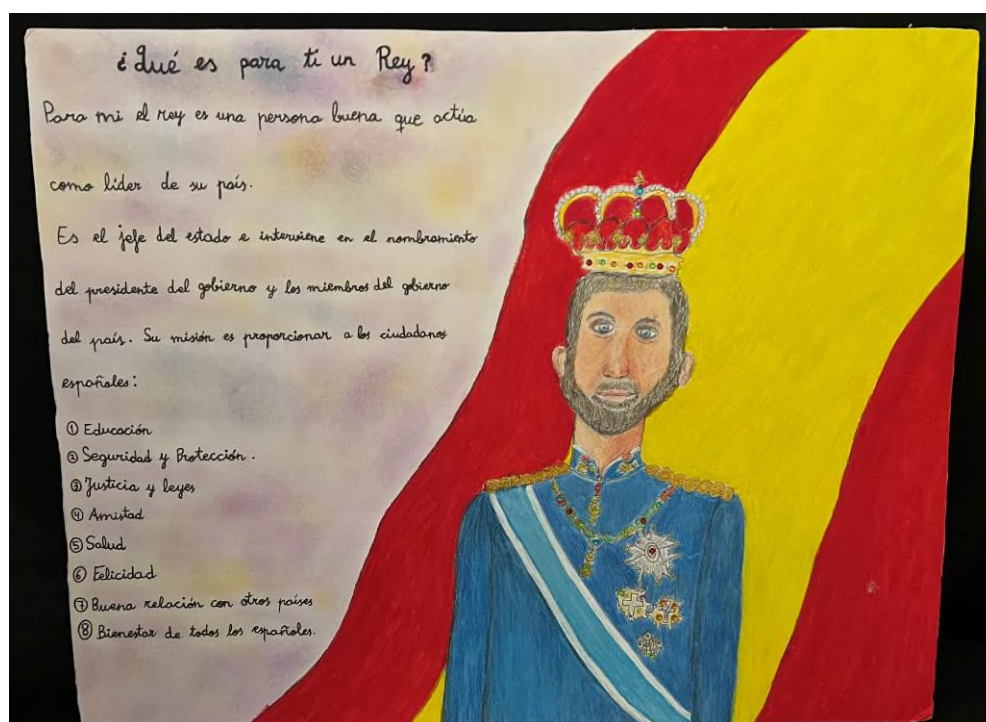 ¿Qué es para ti un Rey?
Para mi el rey es una persona buena que actúa
como líder de su país.
Es el jefe del estado e interviene en el nombramiento
del presidente del gobierno y los miembros del gobierno
del país. Su misión es proporcionar a los ciudadanos
españoles:
① Educación
② Seguridad y Protección.
③ Justicia y leyes
④ Amistad
⑤ Salud
⑥ Felicidad
⑦ Buena relación con otros países
⑧ Bienestar de todos los españoles.